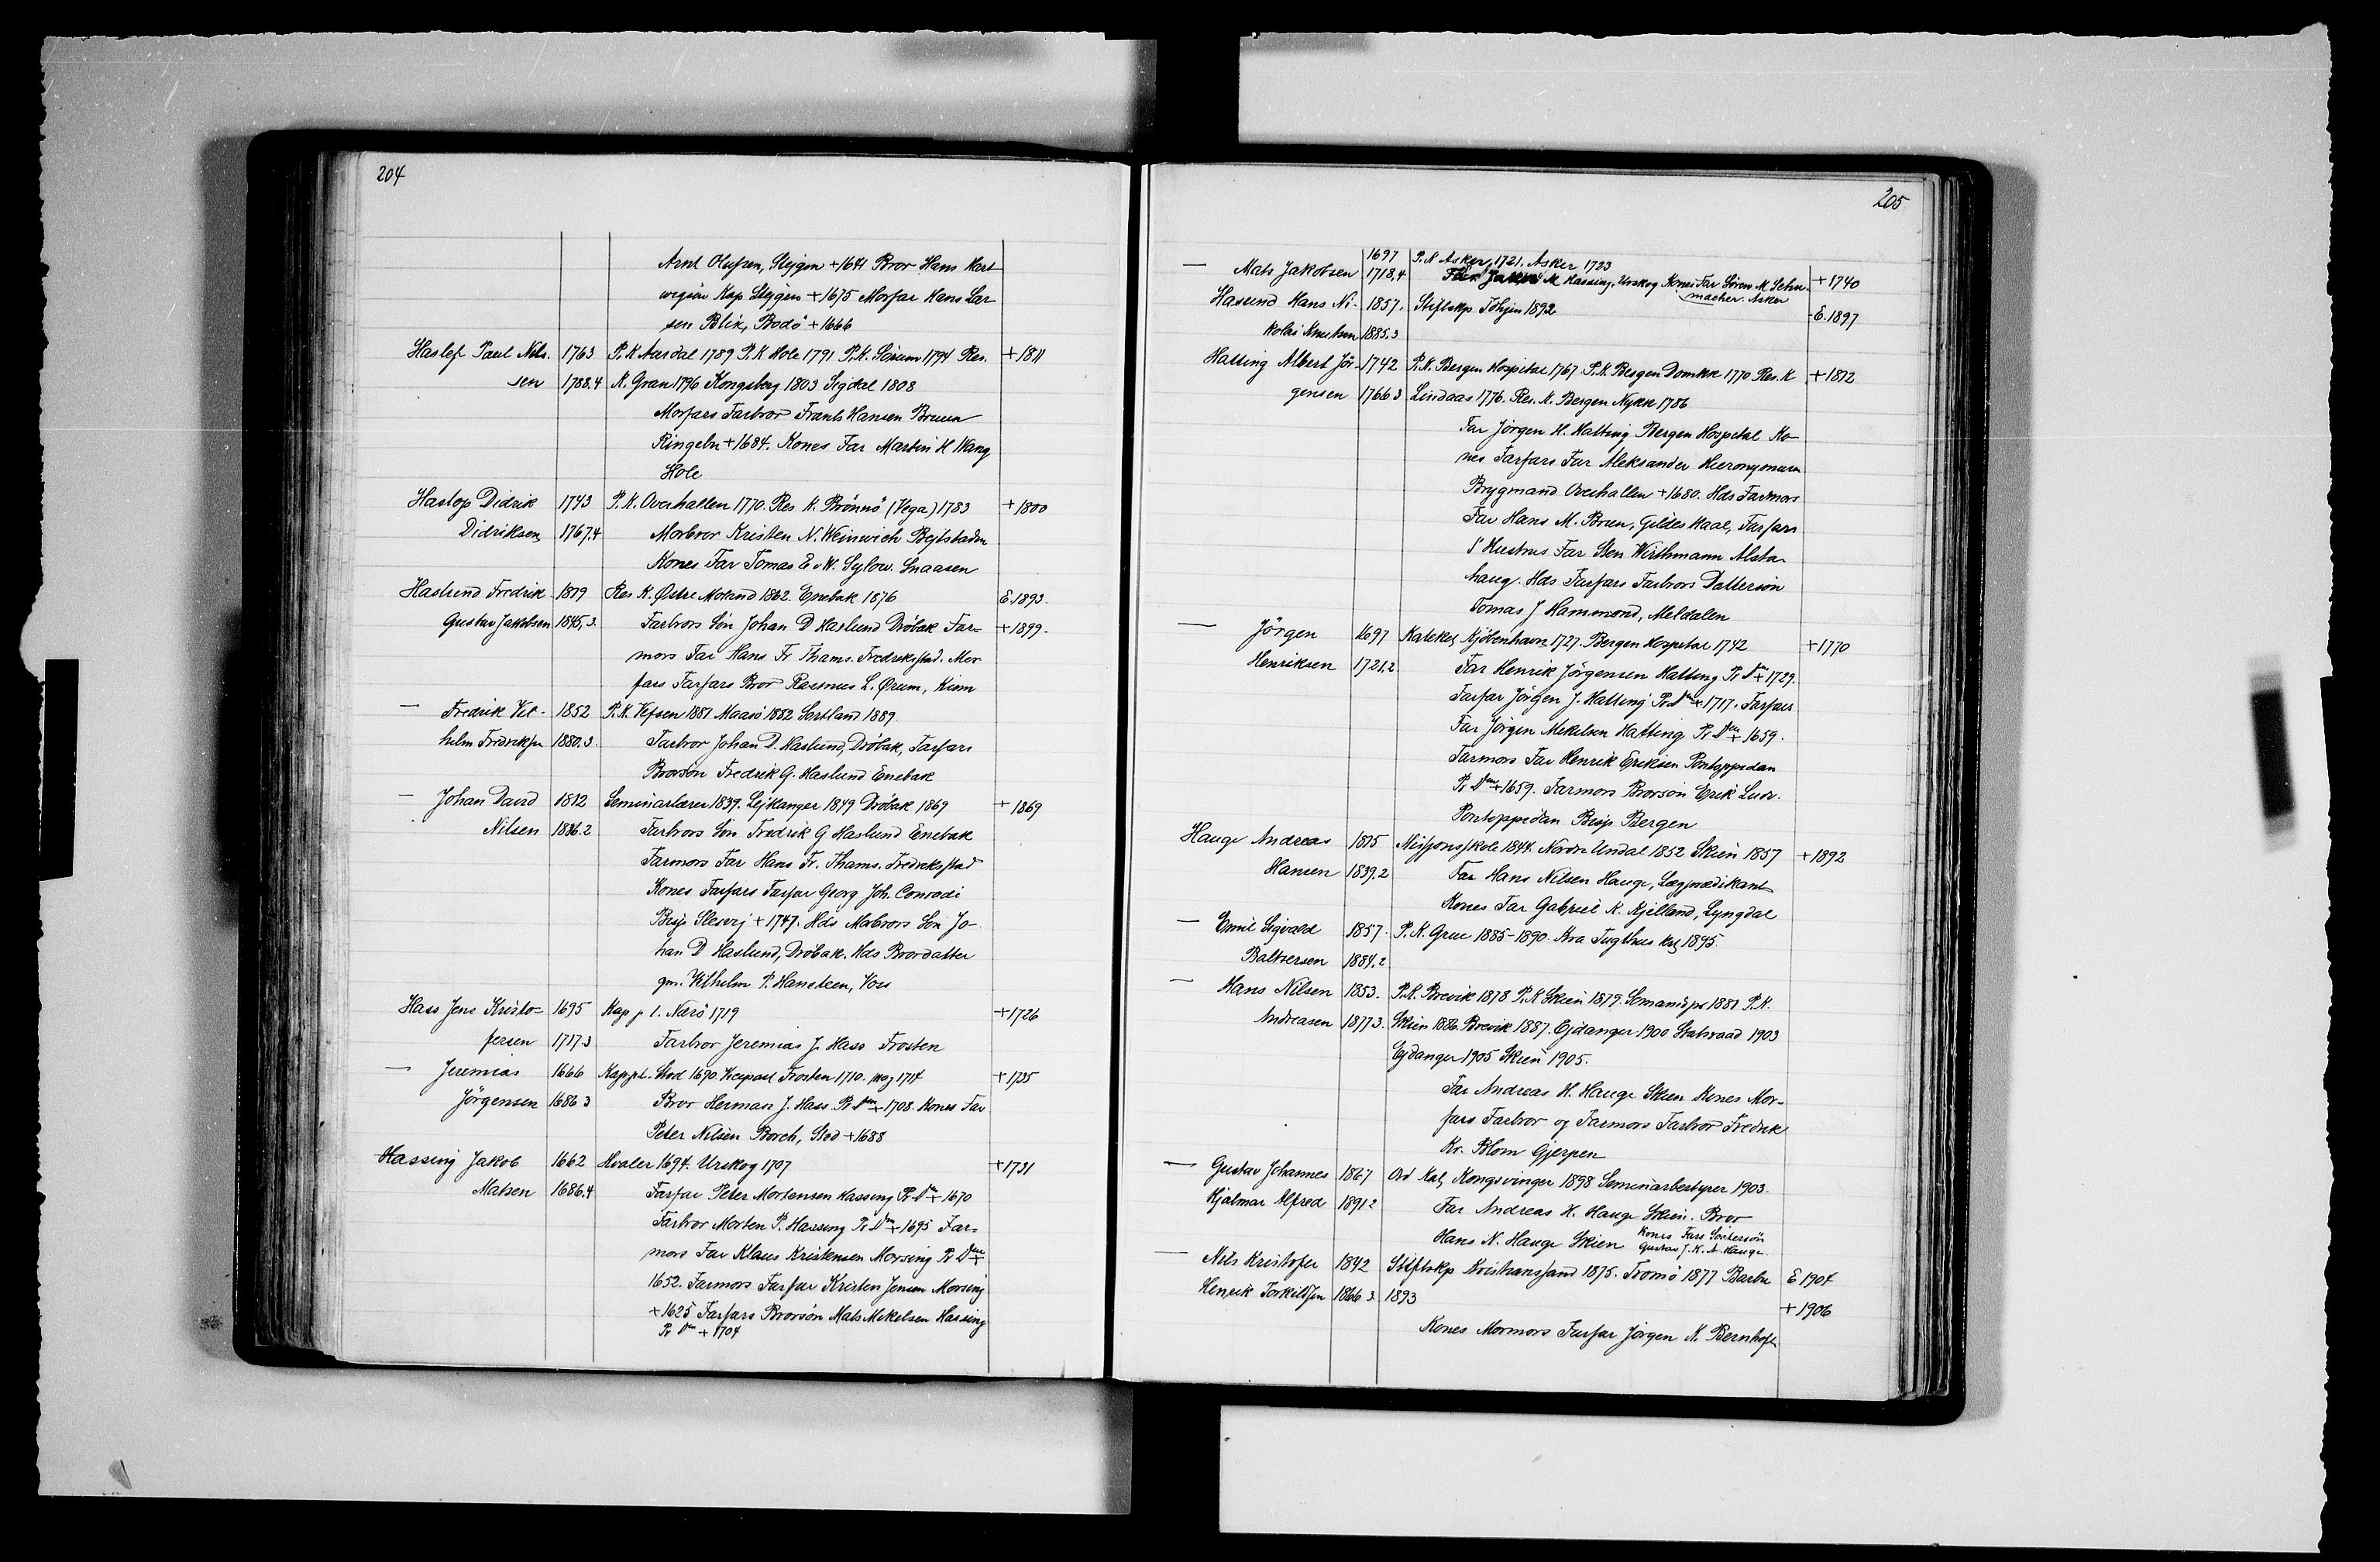 204
Arnt Olufsen, Stejgen +1641 Bror Hans Hart
wigsen Kap Stejgen +1675 Morfar Hans Lar
sen Blix, Bodö +1666
Haslef Paul Nils- 1763 P.K Aardal 1789 P.K Hole 1791 P.K. Sörum 1794 Res. +1811
sen 1788.4 K. Gran 1796 Kongsberg 1803 Sigdal 1808
Morfars Farbror Frants Hansen Bruun
Ringebu +1684. Kones Far Martin H Wang
Hole
Hastop Didrik 1743 P.K. Overhallen 1770. Res K. Brönnö (Vega) 1783 +1800
Didriksen 1767.4 Morbror Kristen N. Weinwich Bejtstaden
Kones Far Tomas E v W. Sylow. Snaasen
Haslund Fredrik 1819 Res K. Østre Moland 1862. Enebak 1876 E.1893.
Gustav Jakobsen 1845.3. Farbrors Sön Johan D Haslund Dröbak Far- +1899.
mors Far Hans Fr Thams. Fredriksstad. Mor
fars Farfars Bror Rasmus L. Ørum, Kinn
— Fredrik Vil- 1852 P.K. Vefsen 1881 Maasö 1882 Sortland 1889.
helm Fredriksen 1880.3. Farbror Johan D. Haslund, Dröbak, Farfars
Brorsön Fredrik G. Haslund Enebak
— Johan David 1812 Seminarlærer 1839. Lejkanger 1849 Dröbak 1869 +1869
Nilsen 1836.2 Farbrors Sön Fredrik G Haslund Enebak
Farmors Far Hans Fr. Thams. Fredriksstad
Kones Farfars Farfar Georg Joh. Conradi
Bisp Slesvig +1747. Hds Morbrors Sön Jo-
han D Haslund, Dröbak. Hds Brordatter
gm. Vilhelm P. Hansteen, Voss
Hass Jens Kristo- 1695 Kap p l. Nærö 1719 +1726
fersen 1717.3 Farbror Jeremias J. Hass Frosten
— Jeremias 1666 Kap.pl. Stod 1690. Vicepast Frosten 1710. mag 1714 +1735
Jörgensen 1686 3 Bror Herman J. Hass Pr Dm +1708. Kones Far
Peter Nilsen Borch, Stod +1688
Hassing Jakob 1662 Hvaler 1694. Urskog 1707 +1731
Matsen 1686.4 Farfar Peter Mortensen Hassing Pr Dm +1670
Farbror Morten P. Hassing Pr Dm +1695 Far-
mors Far Klaus Kristensen Morsing Pr Dm +
1652. Farmors Farfar Kristen Jensen Morsing
+1625 Farfars Brorsön Mats Mikelsen Hassing
Pr Dm +1704
205
1697 P.K Asker, 1721. Asker 1723
— Mats Jakobsen 1718.4 Far Jakob M Hassing, Urskog Kones Far Sören M Schu- +1740
macher. Asker
Hasund Hans Ni- 1857. Stiftskp Tdhjem 1892 E.1897
kolai Knutsen 1885.3
Hatting Albert Jör- 1742 P.K. Bergen Hospital 1767. P.K. Bergen Domkk 1770 Res. K +1812
gensen 1766 3 Lindaas 1776. Res. K. Bergen Nykk 1786
Far Jörgen H. Hatting Bergen Hospital Ko-
nes Farfars Far Aleksander Hieronymusen
Brygmand Overhallen +1680. Hds Farmors
Far Hans M. Bruun, Gildeskaal, Farfars
1' Hustrus Far Sten Wirthmann Alsta-
haug. Hds Farfars Farbrors Dattersön
Tomas J Hammond, Meldalen
— Jörgen 1697 Kateket, Kjöbenhavn 1727. Bergen Hospital 1742 +1770
Henriksen 1721.2 Far Henrik Jörgensen Hatting Pr Dm +1729.
Farfar Jörgen J. Hatting Pr Dm +1717. Farfars
Far Jörgen Mikelsen Hatting Pr Dm +1659.
Farmors Far Henrik Eriksen Pontoppidan
Pr Dm +1659. Farmors Brorsön Erik Ludv.
Pontoppidan Bisp Bergen
Hauge Andreas 1815 Misjonsskole 1844. Nordre Undal 1852 Skien 1857 +1892
Hansen 1839.2 Far Hans Nilsen Hauge, Lægprædikant
Kones Far Gabriel K. Kjelland, Lyngdal
— Emil Sigvald 1857. P.K. Grue 1885-1890. Kra Tugthus Kat 1895
Baltsersen 1884.2
— Hans Nilsen 1853. P.K. Brevik 1878 P.K Skien 1879. Sømandspr 1881 P.K.
Andreasen 1877 3. Skien 1886. Brevik 1887. Ejdanger 1900 Statsraad 1903
Ejdanger 1905 Skien 1905.
Far Andreas H. Hauge Skien Kones Mor-
fars Farbror og Farmors Farbror Fredrik
Kr. Blom Gjerpen
— Gustav Johannes 1867 Ord Kat, Kongsvinger 1898 Seminarbestyrer 1903.
Hjalmar Alfred 1891 2 Far Andreas H. Hauge Skien. Bror
Hans N. Hauge Skien Kones Fars Sösterson
Gustav J. H. A. Hauge
— Nils Kristofer 1842 Stiftskp Kristianssand 1875. Tromö 1877 Barbu E 1904
Henrik Torkildsen 1866 3. 1893 +1906
Kones Mormors Farfar Jörgen N. Bernhoft